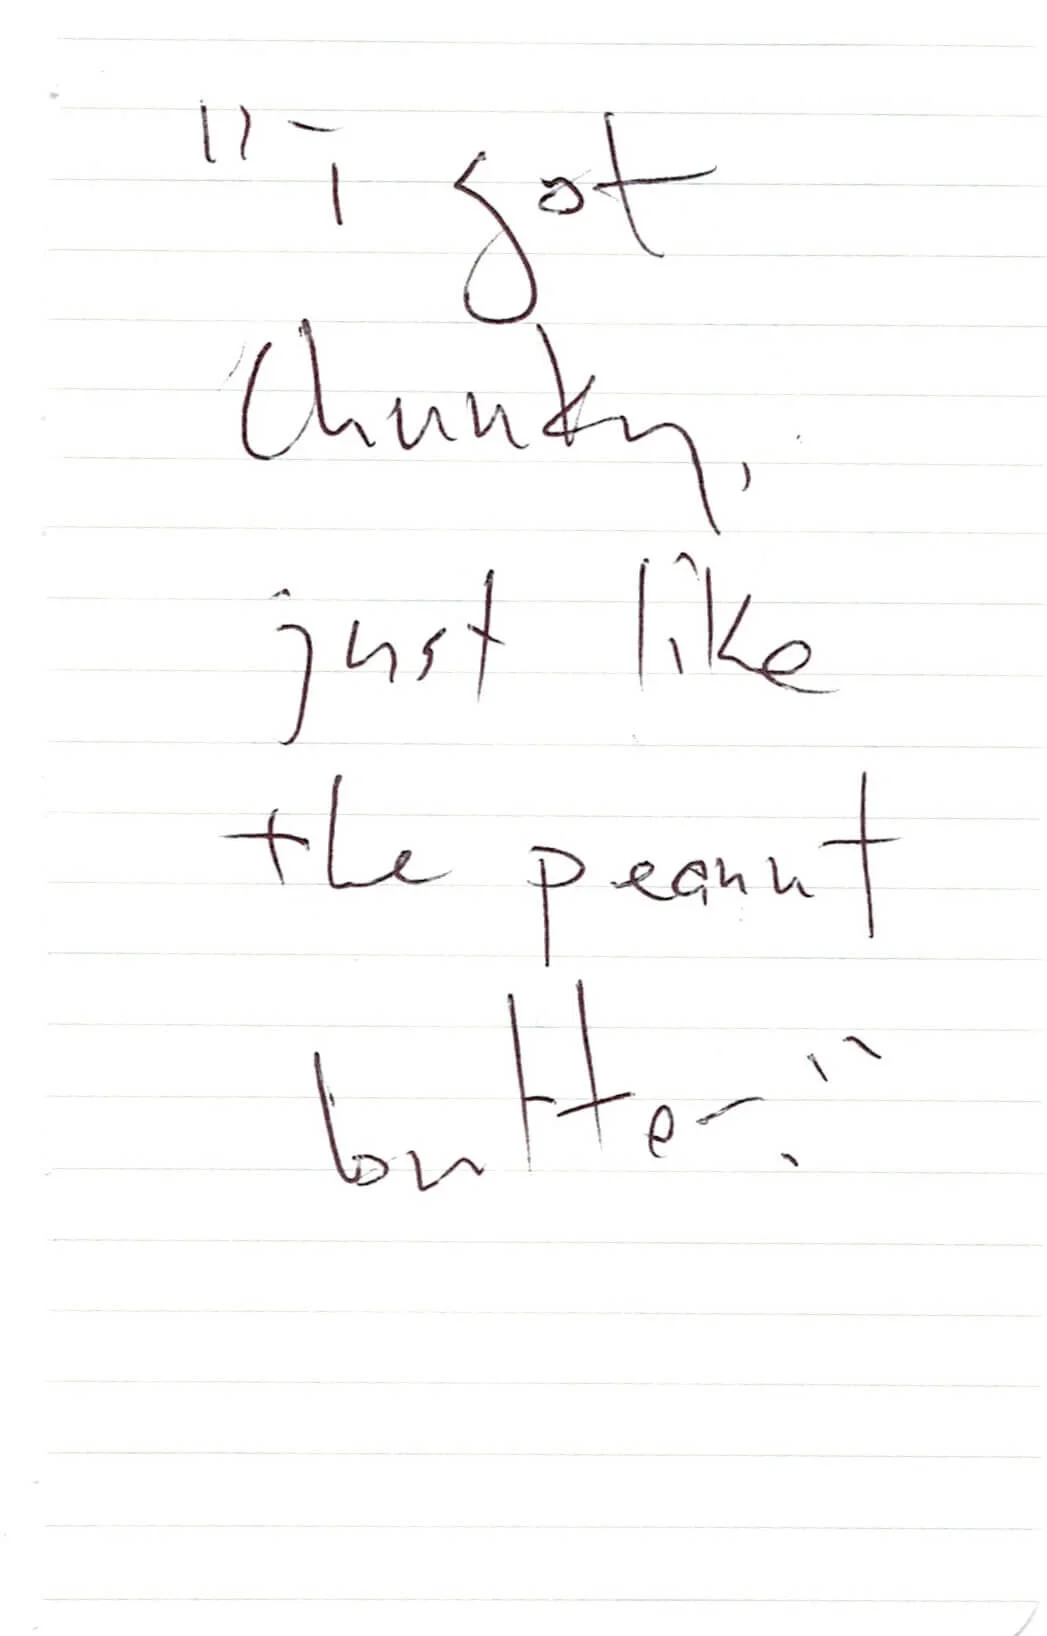 "i got
chunky,
just like
the peanut
butter."